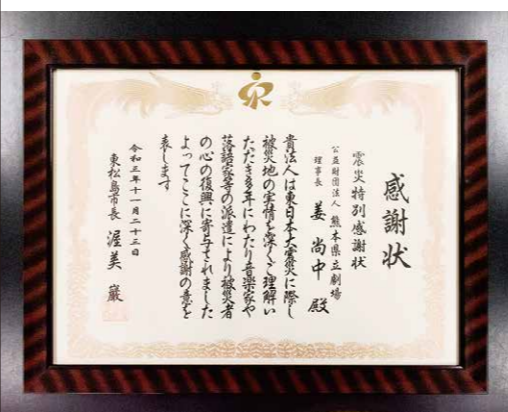 感謝状
震災特別感謝状
公益財団法人 熊本県立劇場
理事長 姜尚中 殿
貴法人は東日本大震災に際し
被災地の実情を深くご理解い
ただき多年にわたり音楽家や
落語家等の派遣により被災者
の心の復興に寄与されました
よってここに深く感謝の意を
表します
令和三年十一月二十三日
東松島市長 渥美巖